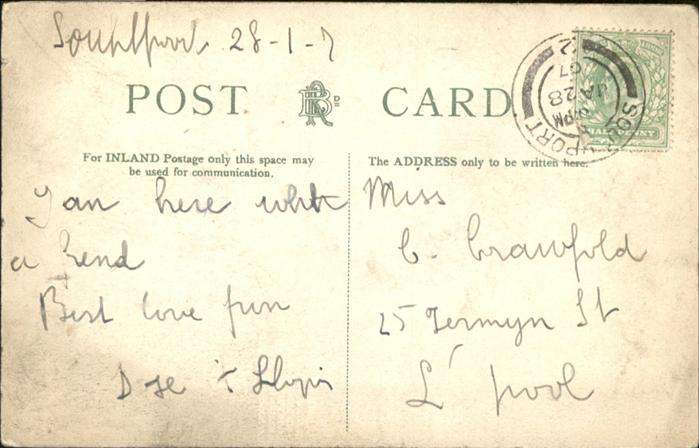 28-1-7
POST CARD
For INLAND Postage only this space may
be used for communication.
The ADDRESS only to be written here.
SOUTHPORT
JA 28
07
HALFPENNY
here
a
Best love from
Miss
C. Crawfold
25 Jermyn St
L'pool